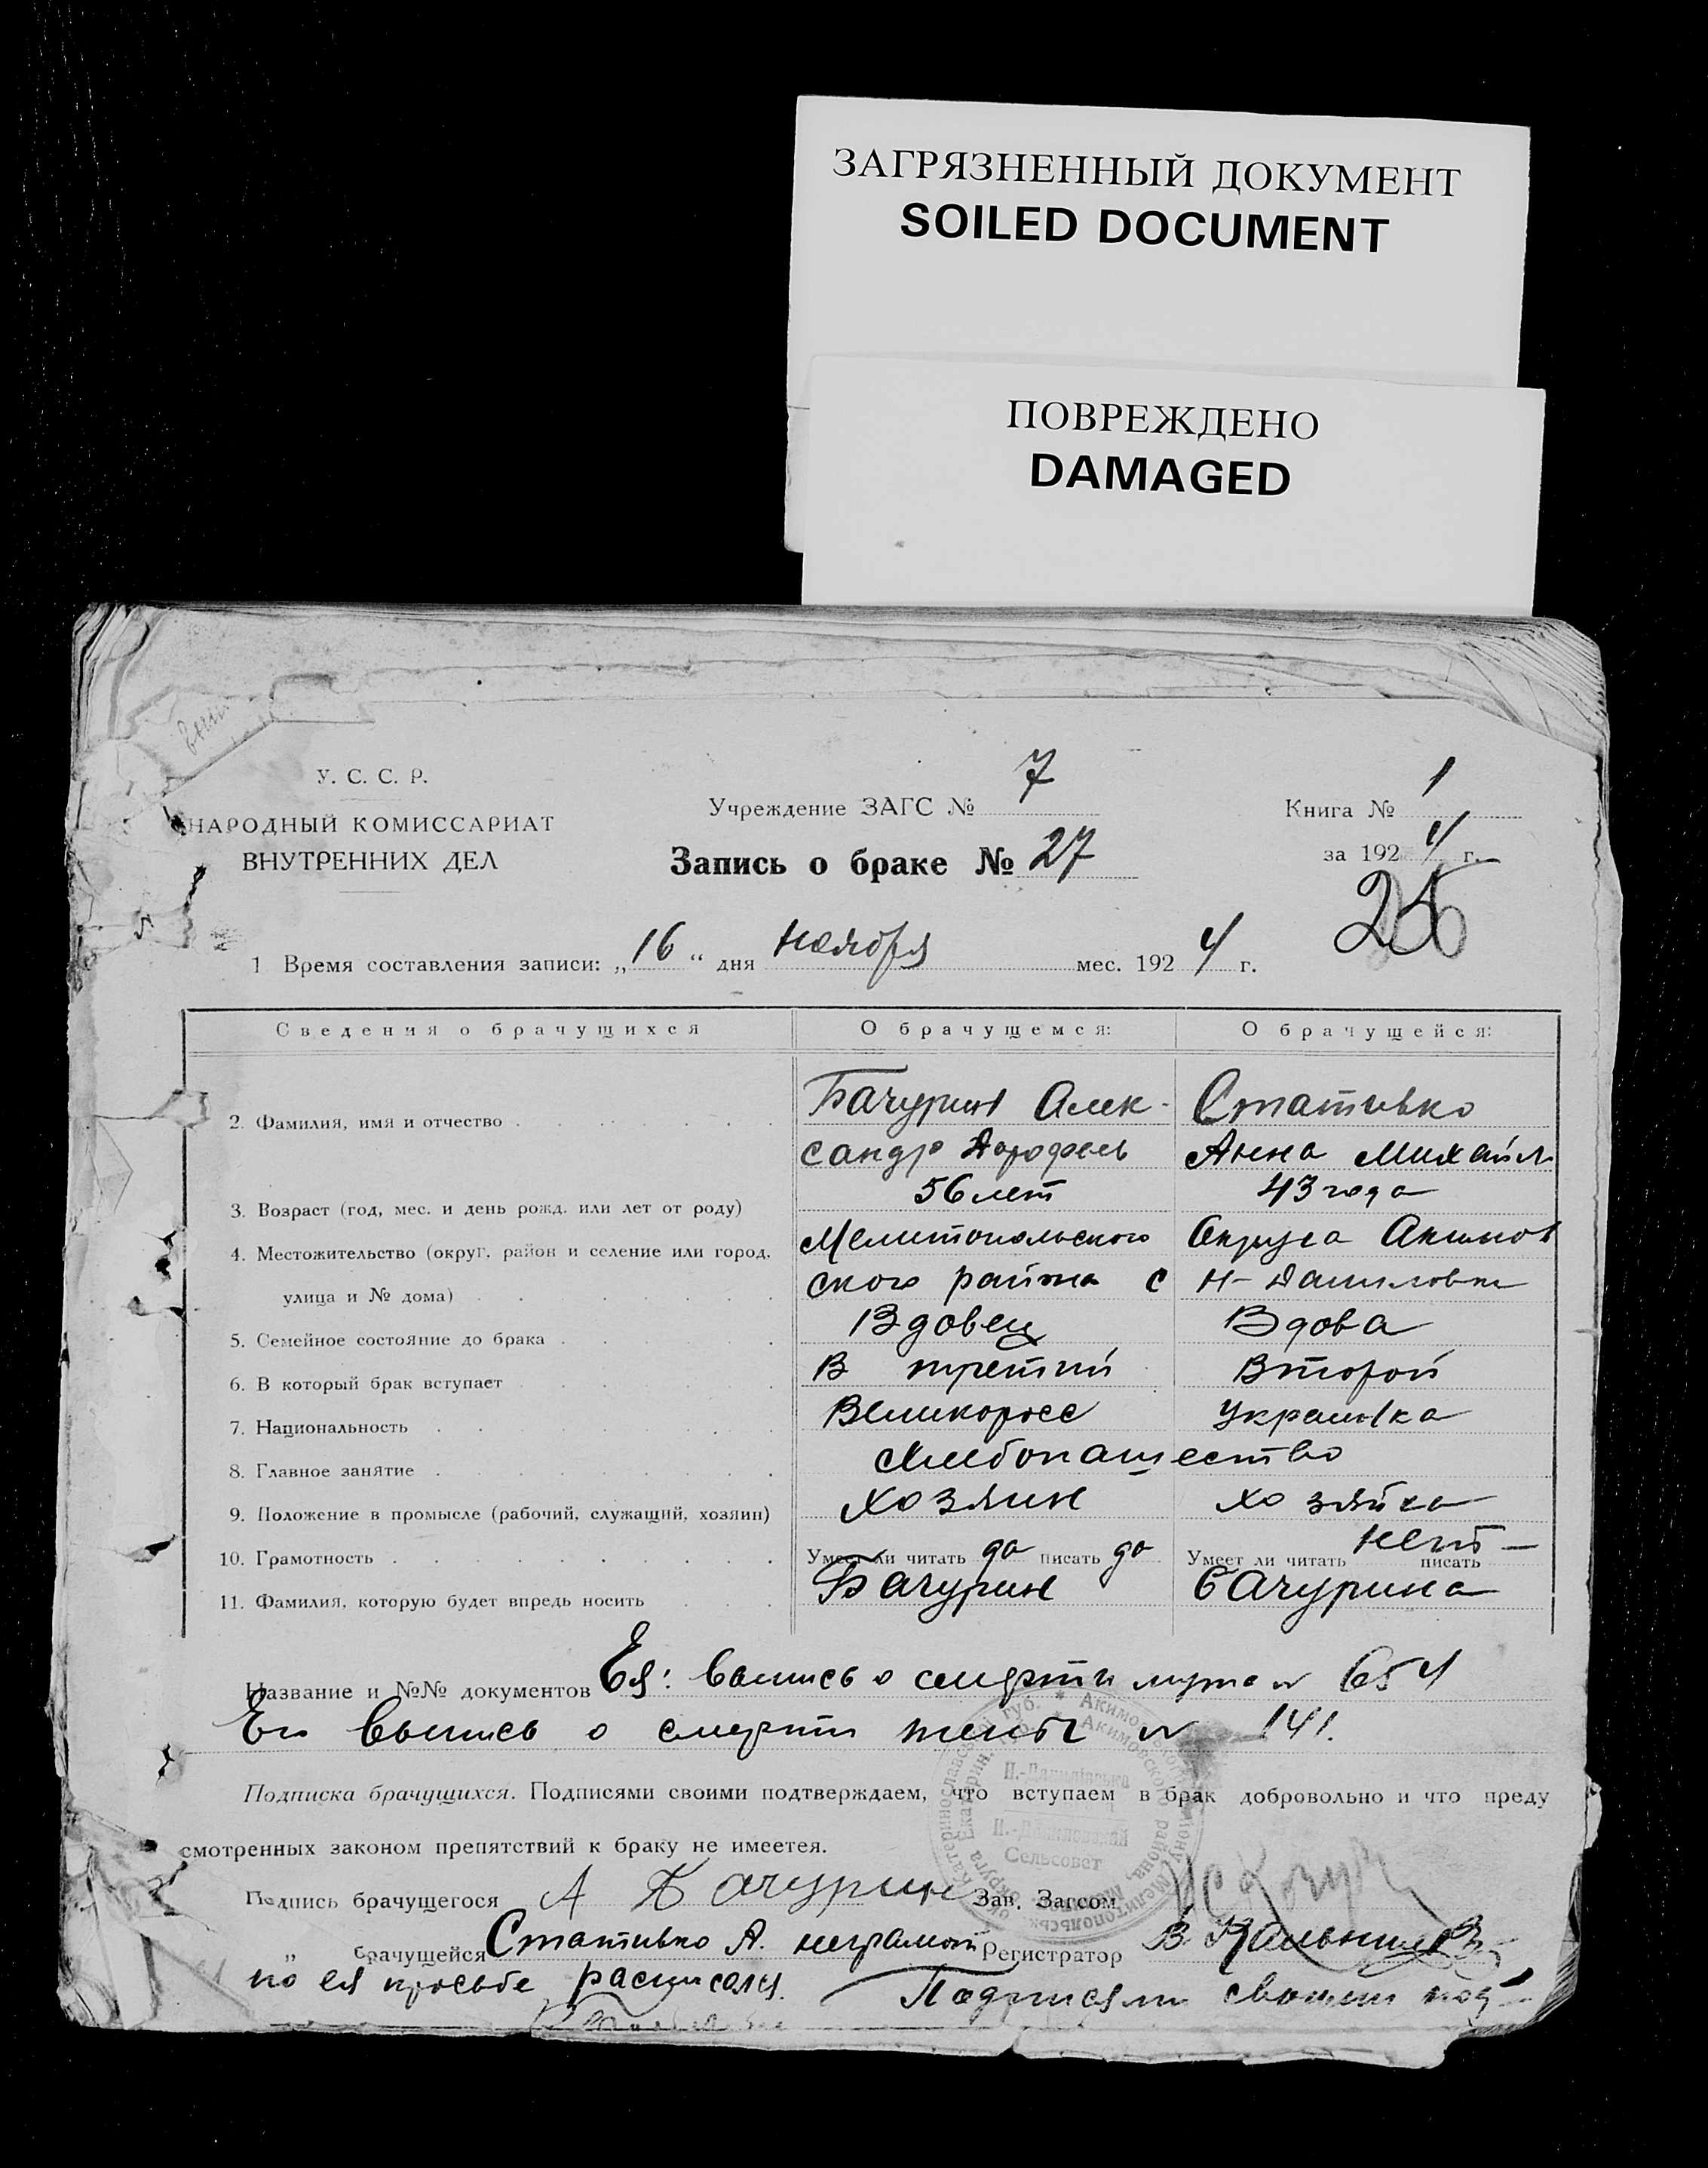 ЗАГРЯЗНЕННЫЙ ДОКУМЕНТ
SOILED DOCUMENT
ПОВРЕЖДЕНО
DAMAGED
У. С. С. Р.
НАРОДНЫЙ КОМИССАРИАТ
ВНУТРЕННИХ ДЕЛ
Учреждение ЗАГС № 7
Запись о браке № 27
Книга № 1
за 1924 г.
1 Время составления записи: „16“ дня ноября мес. 1924 г.
Сведения о брачущихся О брачущемся: О брачущейся:
2. Фамилия, имя и отчество Бачурин Алек- Стативко
сандр Дорофеев Анна Михайл
3. Возраст (год, мес. и день рожд. или лет от роду) 56 лет 43 года
4. Местожительство (округ, район и селение или город, Мелитопольского Округа Акимов
улица и № дома) ского района с Н-Даниловки
5. Семейное состояние до брака Вдовец Вдова
6. В который брак вступает В третий Второй
7. Национальность Великоросс Украинка
8. Главное занятие Хлебопашество
9. Положение в промысле (рабочий, служащий, хозяин) хозяин хозяйка
10. Грамотность Умеет ли читать да писать да Умеет ли читать нет писать —
11. Фамилия, которую будет впредь носить Бачурин Бачурина
Название и №№ документов Ея: Выпись о смерти мужа № 654
Его Выпись о смерти жены № 141.
Подписка брачущихся. Подписями своими подтверждаем, что вступаем в брак добровольно и что преду
смотренных законом препятствий к браку не имеетея.
Н.-Данилівська
Н.-Даниловский
Сельсовет
Подпись брачущегося А Бачурин Зав. Загсом
„ брачущейся Стативко А. неграмот Регистратор В.
по ея просьбе расписался. Подписями своими под-